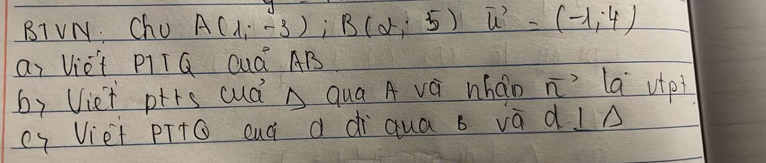 BTVN: Cho A(1; -3); B(2; 5) u⃗ = (-1; 4)
a, Viết PTTQ của AB
b, Viết ptts của Δ qua A và nhận n⃗ là vtpt
c, Viết PTTQ của d đi qua B và d ⊥ Δ